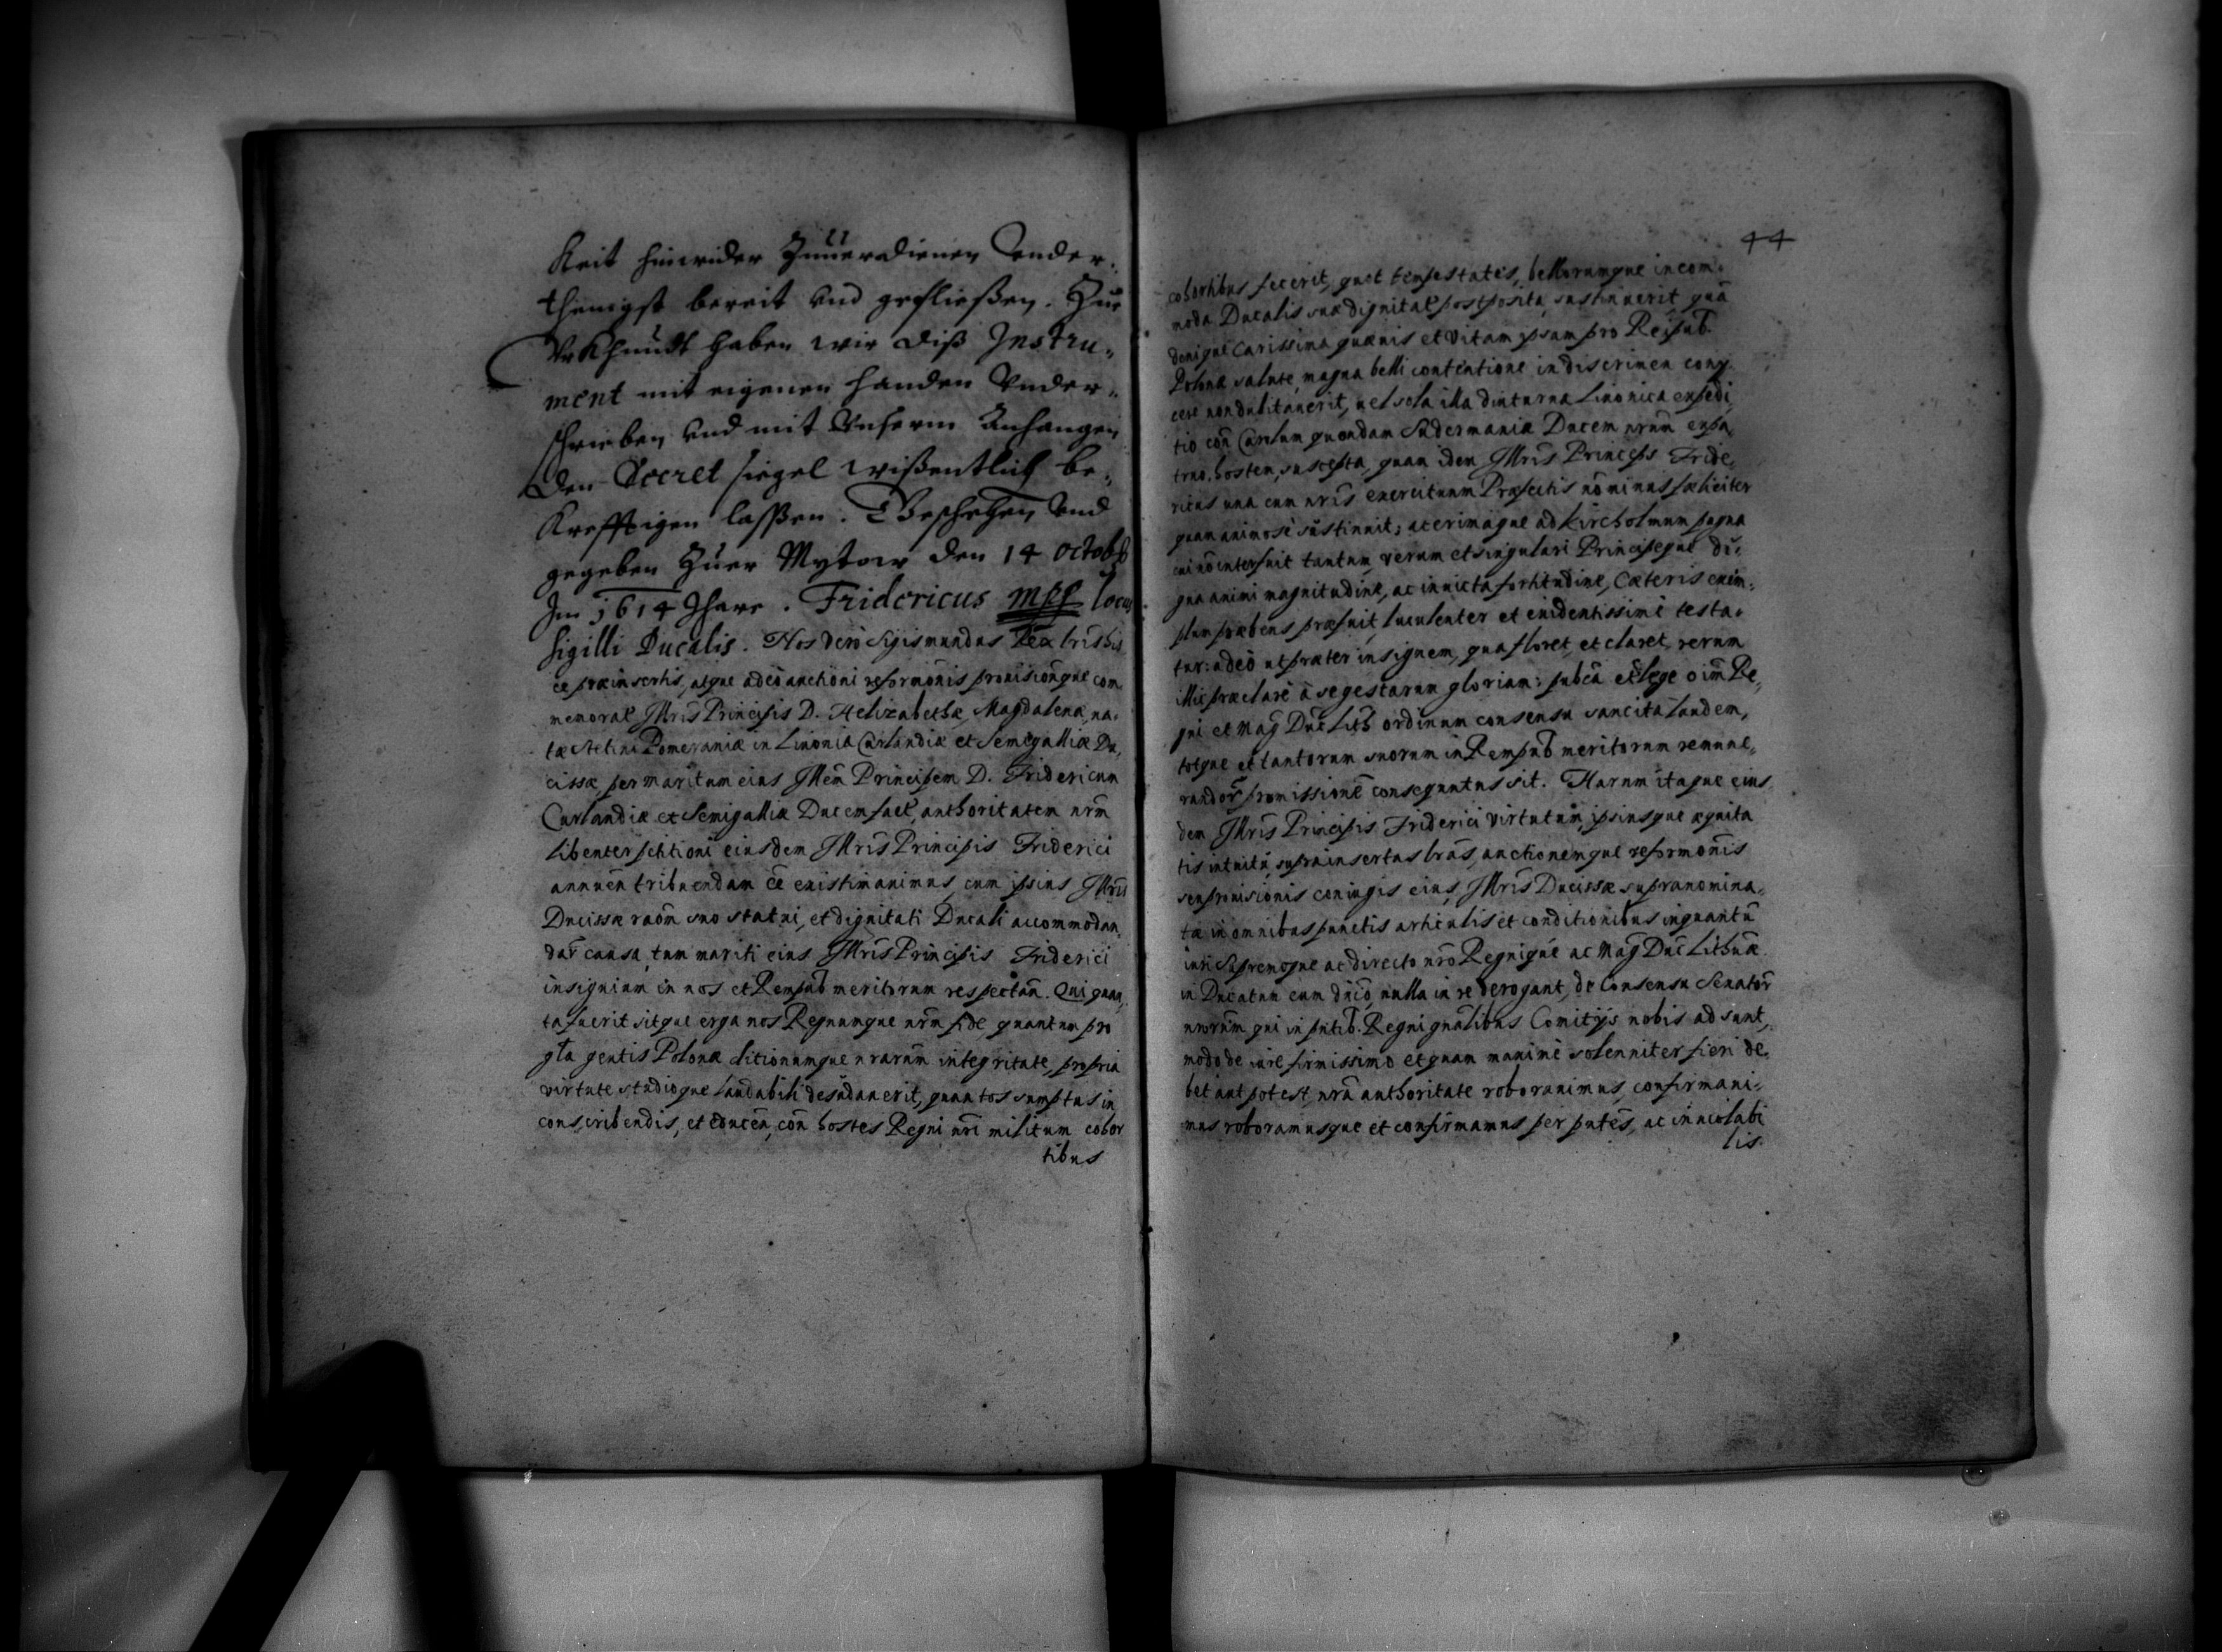 Keit hinwider Zuuerdienen Vnder-
thenigst bereit vnd gefließen. Zur
Vrkhundt haben wir diß Instru-
ment mit eigenen handen Vnder-
schrieben vnd mit Vnserm Anhangen
den Secret siegel wißentlich be-
Krefftigen laßen. Geschehen Vnd
gegeben Zuer Mytow den 14 Octobr
Im 1614 Jhare. Fridericus mpp locus
Sigilli Ducalis. Nos vero Sigismundus Rex lris hisce
præinsertis, atque adeo auctioni reformõnis prouisionque com
memorat Illris Principis D. Aelizabethæ Magdalenæ, na-
tæ Stetini Pomeraniæ in Liuonia Curlandiæ et Semigalliæ Du-
cissæ per maritum eius Illrem Principem D. Fridericum
Curlandiæ et Semigalliæ Ducem fact, authoritatem nrm
libenter petitioni eiusdem Illris Principis Friderici
annuen tribuendam ee existimauimus, cum ipsius Illris
Ducissæ raõm suo statui, et dignitati Ducali accommodan-
dar causa, tum mariti eius Illris Principis Friderici
insignium in nos et Rempub meritorum respectum. Qui quan-
ta fuerit sitque erga nos Regnumque nrm fide quantum pro
gta gentis Polonæ ditionumque nrarum integritate, propria
virtute studioque laudabili desudauerit, quantos sumptus in
conscribendis, et ducen, con hostes Regni nri militum cohor
tibus
44
cohortibus fecerit, quot tempestates, bellorumque incom-
moda Ducalis suæ dignitate postposita, sustinuerit, quã
denique Carissima quæuis et vitam ipsam pro Reipub.
Polonæ salute, magna belli contentione in discrimen conÿ
cere non dubitauerit, uel sola illa diuturna Liuonica expedi
tio con Carolum quondam Sudermaniæ Ducem nrum expa
truo. hostem, suscepta, quam idem Illris Princeps Fride-
ricus una cum nris exercituum Præfectis nõ minus fæliciter
quam animose sustinuit; acerrimaque ad Kircholmum pugna
cui nõ interfuit tantum, verum et singulari Principeque di-
gna animi magnitudine, ac inuicta fortitudine, Cæteris exem-
plum præbens præfuit, luculenter et euidentissime testa-
tur: adeo ut præter insignem, qua floret, et claret, rerum
illic præclare à se gestarum gloriam: publicã et lege oim Re-
gni et Mag Duc Lith ordinum consensu sancita laudem,
totque et tantorum suorum in Rempub meritorum remune-
randor promissione consequutus sit. Harum itaque eius
dem Illris Principis Friderici virtutum, ipsiusque æquita
tis intuitu, suprainsertas lras, auctionemque reformonis
seu prouisionis coniugis eius, Illris Ducissæ supranomina-
tæ in omnibus punctis articulis et conditionibus inquantũ
iuri Supremoque ac directo nro Regnique ac Mag Duc Lithuæ
in Ducatum eum dnio, nulla in re derogant, de Consensu Senator
nrorum qui in pntib. Regni gnalibus Comitÿs nobis adsunt,
modo de iure firmissimo et quam maxime solenniter fieri de-
bet aut potest, nra authoritate roborauimus, confirmaui-
mus roboramusque et confirmamus per pntes, ac inuiolabi
lis